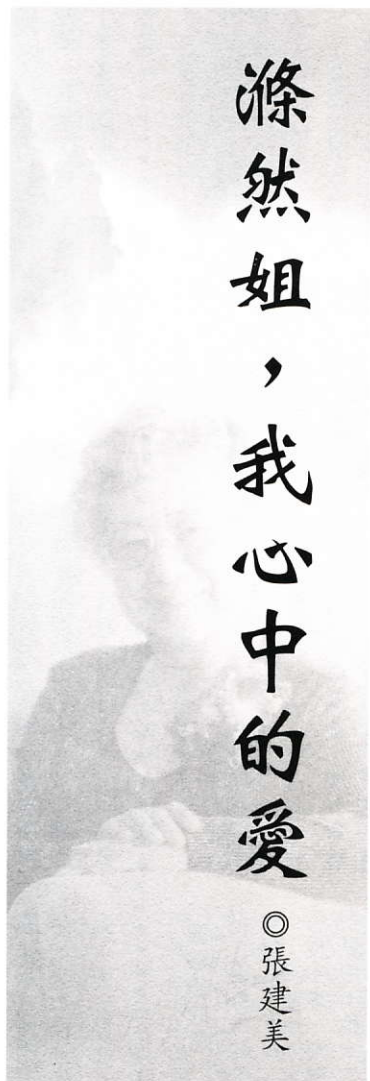 滌然姐，我心中的愛
◎張建美